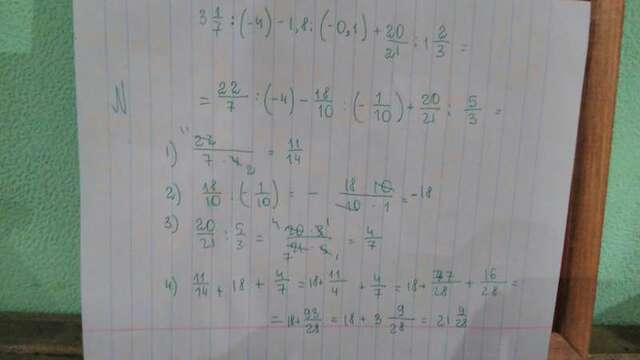 3 1/7 : (-4) - 1,8 : (-0,1) + 20/21 : 1 2/3 =
N = 22/7 : (-4) - 18/10 : (-1/10) + 20/21 : 5/3 =
1) 22/7·4 11 2 = 11/14
2) 18/10 : (-1/10) = - 18·10/10·1 = -18
3) 20/21 : 5/3 = 4 20·3 1/7 21·5 1 = 4/7
4) 11/14 + 18 + 4/7 = 18 + 11/4 + 4/7 = 18 + 77/28 + 16/28 =
= 18 + 93/28 = 18 + 3 9/28 = 21 9/28